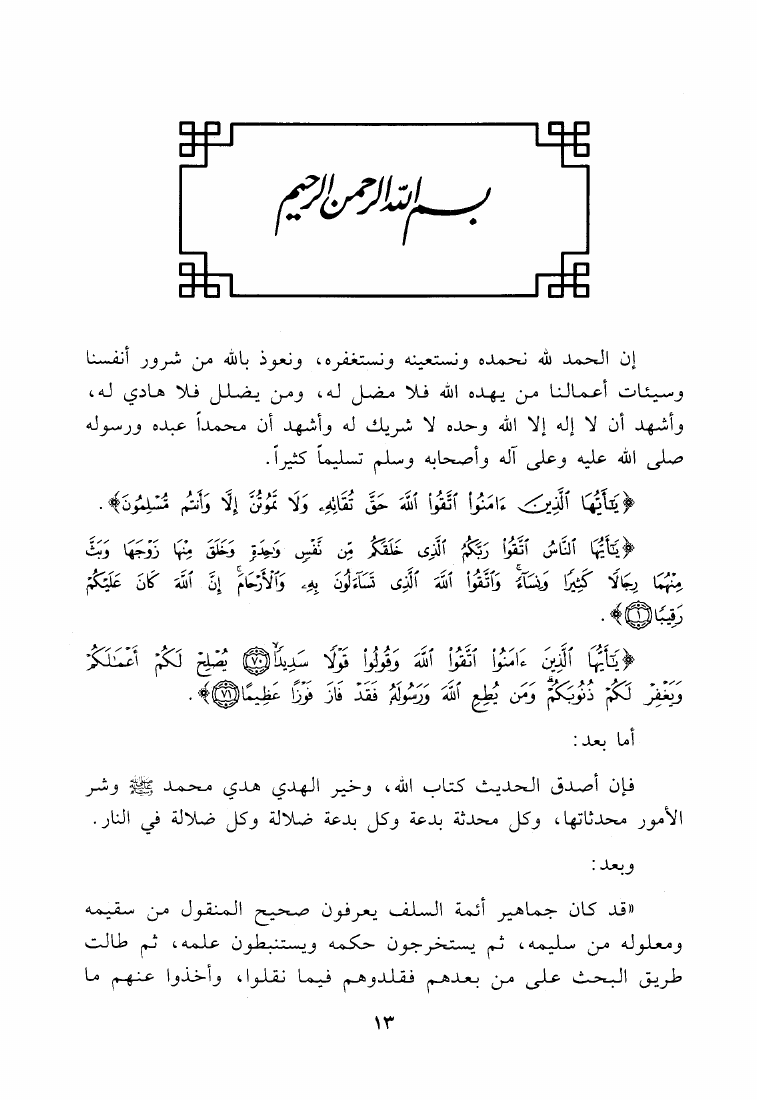 بسم الله الرحمن الرحيم
إن الحمد لله نحمده ونستعينه ونستغفره، ونعوذ بالله من شرور أنفسنا
وسيئات أعمالنا من يهده الله فلا مضل له، ومن يضلل فلا هادي له،
وأشهد أن لا إله إلا الله وحده لا شريك له وأشهد أن محمداً عبده ورسوله
صلى الله عليه وعلى آله وأصحابه وسلم تسليماً كثيراً.
﴿يَٰٓأَيُّهَا ٱلَّذِينَ ءَامَنُوا۟ ٱتَّقُوا۟ ٱللَّهَ حَقَّ تُقَاتِهِۦ وَلَا تَمُوتُنَّ إِلَّا وَأَنتُم مُّسْلِمُونَ﴾.
﴿يَٰٓأَيُّهَا ٱلنَّاسُ ٱتَّقُوا۟ رَبَّكُمُ ٱلَّذِى خَلَقَكُم مِّن نَّفْسٍ وَٰحِدَةٍ وَخَلَقَ مِنْهَا زَوْجَهَا وَبَثَّ
مِنْهُمَا رِجَالًا كَثِيرًا وَنِسَآءً ۚ وَٱتَّقُوا۟ ٱللَّهَ ٱلَّذِى تَسَآءَلُونَ بِهِۦ وَٱلْأَرْحَامَ ۚ إِنَّ ٱللَّهَ كَانَ عَلَيْكُمْ
رَقِيبًا ۝١﴾.
﴿يَٰٓأَيُّهَا ٱلَّذِينَ ءَامَنُوا۟ ٱتَّقُوا۟ ٱللَّهَ وَقُولُوا۟ قَوْلًا سَدِيدًا ۝٧٠ يُصْلِحْ لَكُمْ أَعْمَٰلَكُمْ
وَيَغْفِرْ لَكُمْ ذُنُوبَكُمْ ۗ وَمَن يُطِعِ ٱللَّهَ وَرَسُولَهُۥ فَقَدْ فَازَ فَوْزًا عَظِيمًا ۝٧١﴾.
أما بعد:
فإن أصدق الحديث كتاب الله، وخير الهدي هدي محمد ﷺ وشر
الأمور محدثاتها، وكل محدثة بدعة وكل بدعة ضلالة وكل ضلالة في النار.
وبعد:
«قد كان جماهير أئمة السلف يعرفون صحيح المنقول من سقيمه
ومعلوله من سليمه، ثم يستخرجون حكمه ويستنبطون علمه، ثم طالت
طريق البحث على من بعدهم فقلدوهم فيما نقلوا، وأخذوا عنهم ما
١٣